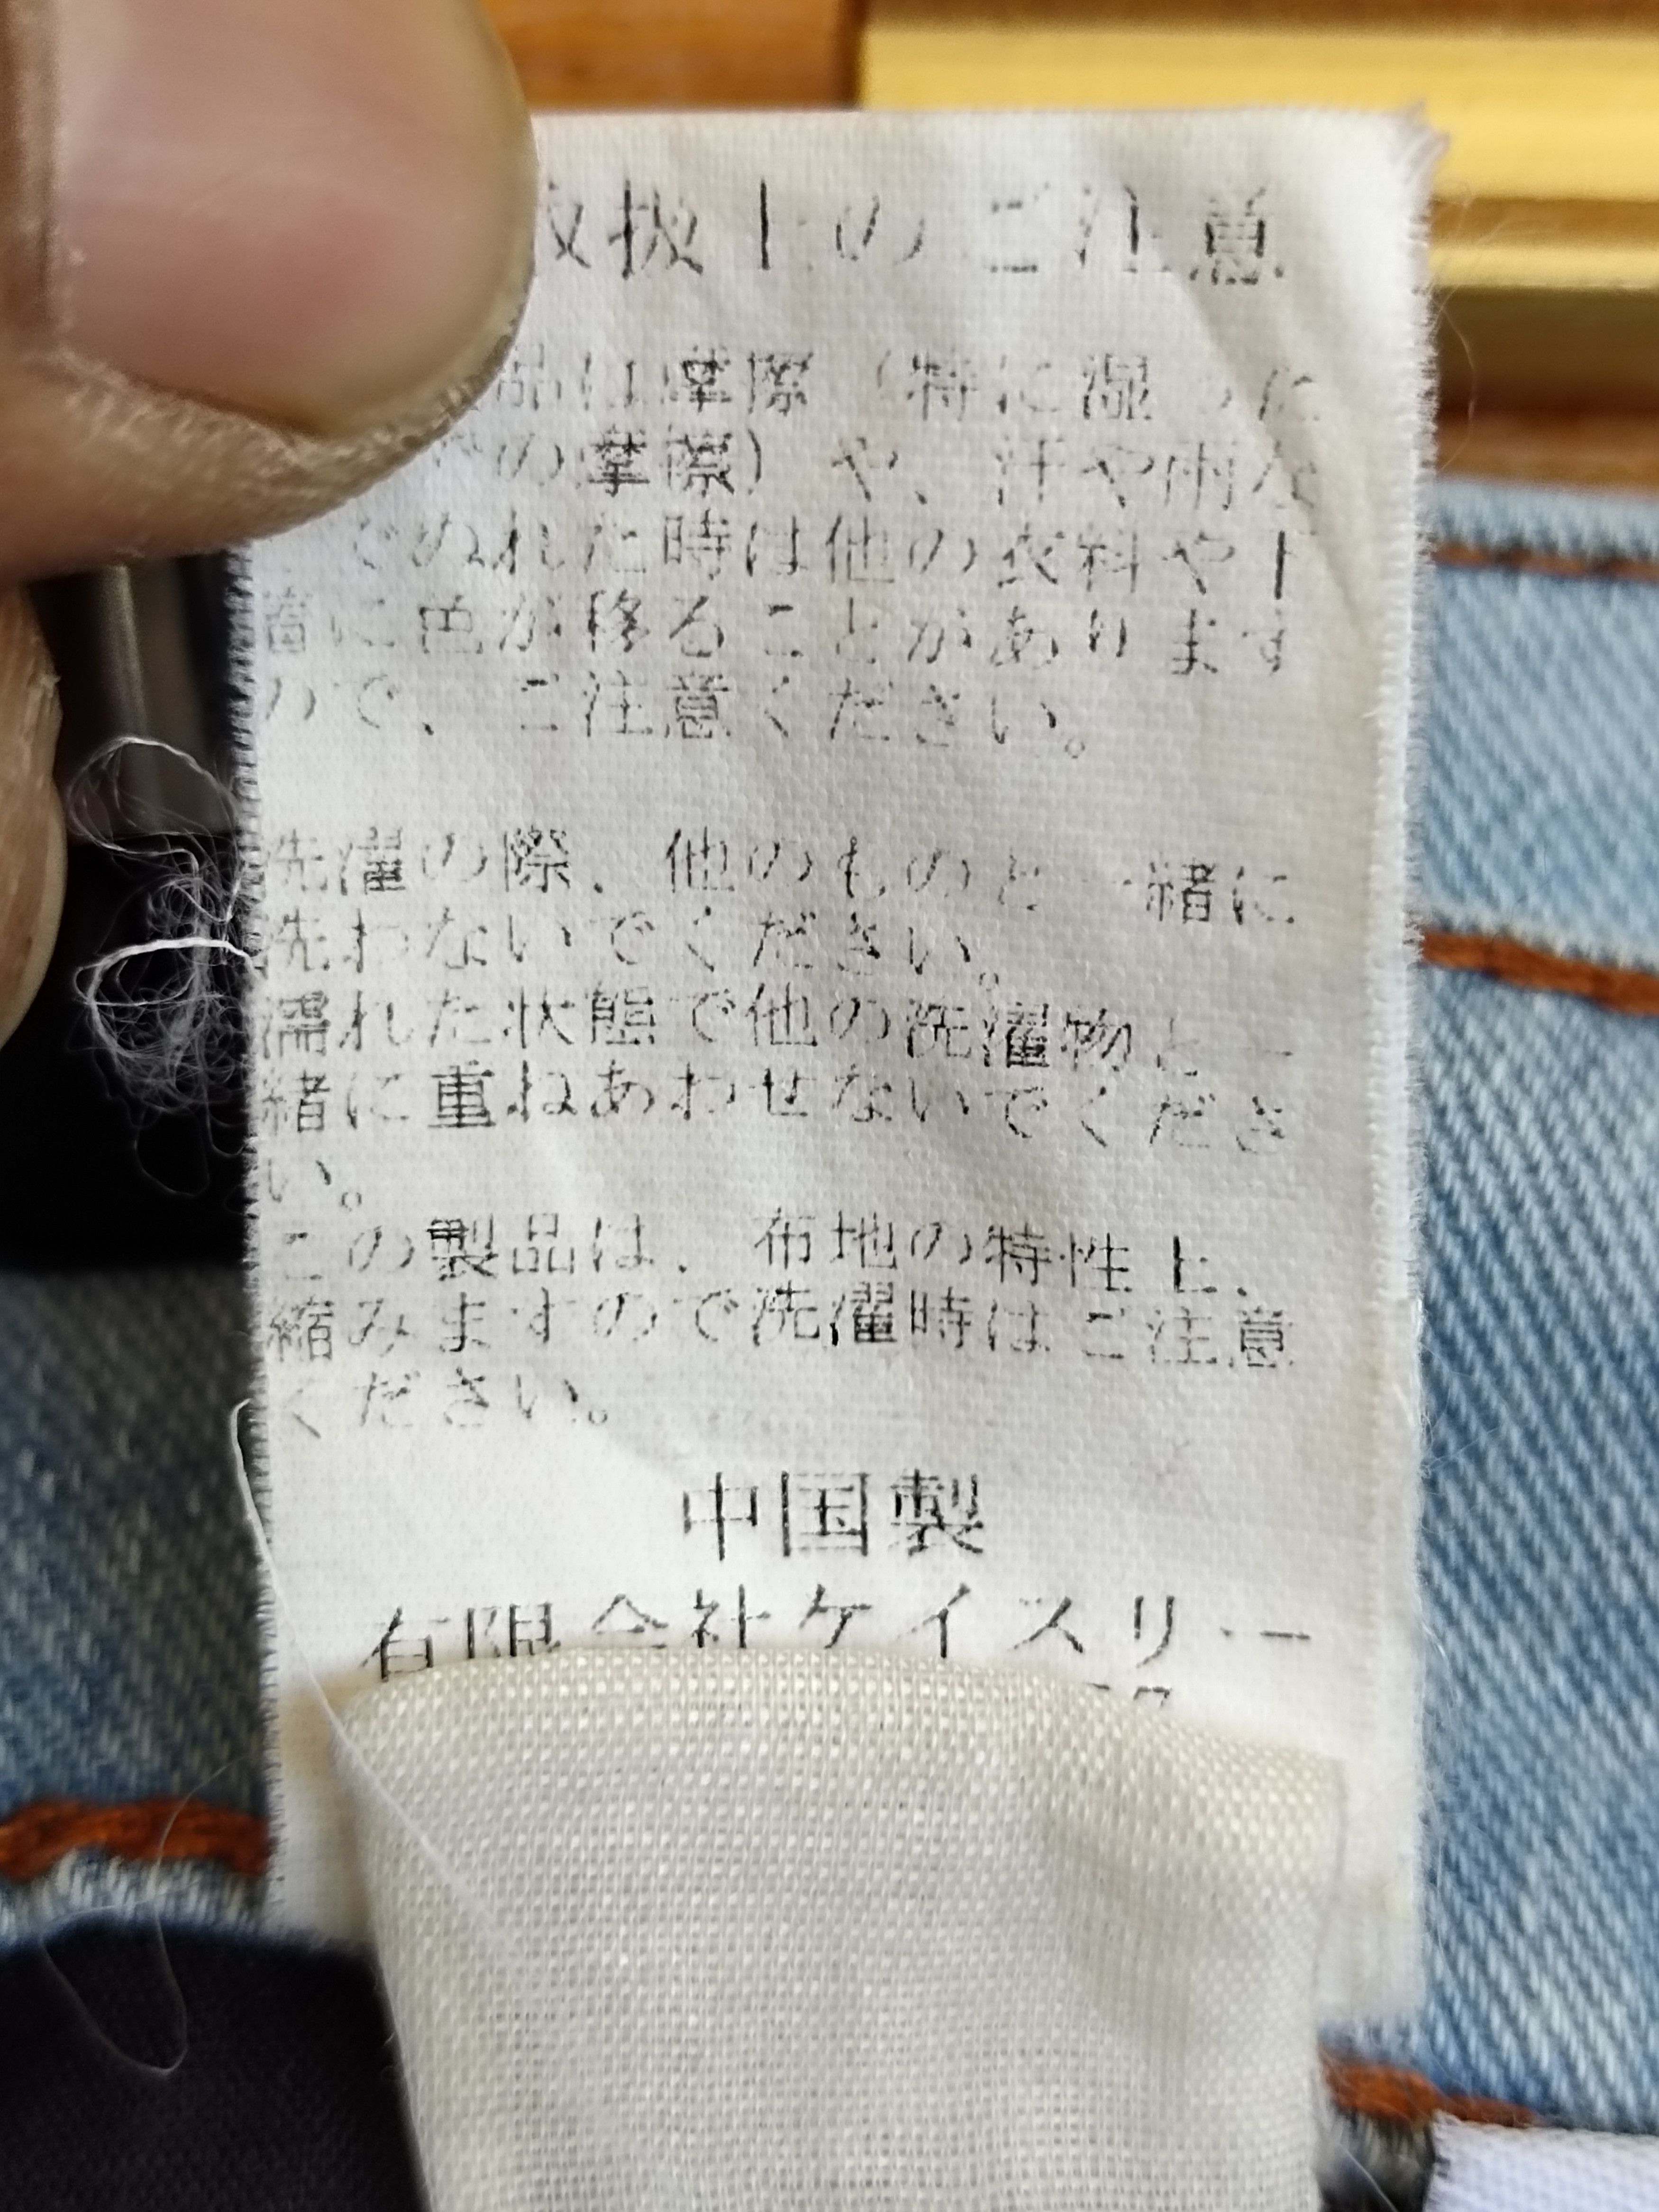 取扱上のご注意
品は摩擦(特に湿った
での摩擦)や、汗や雨な
でぬれた時は他の衣料や下
着に色が移ることがあります
ので、ご注意ください。
洗濯の際、他のものと一緒に
洗わないでください。
濡れた状態で他の洗濯物と一
緒に重ねあわせないでくださ
い。
この製品は、布地の特性上、
縮みますので洗濯時はご注意
ください。
中国製
有限会社ケイスリー